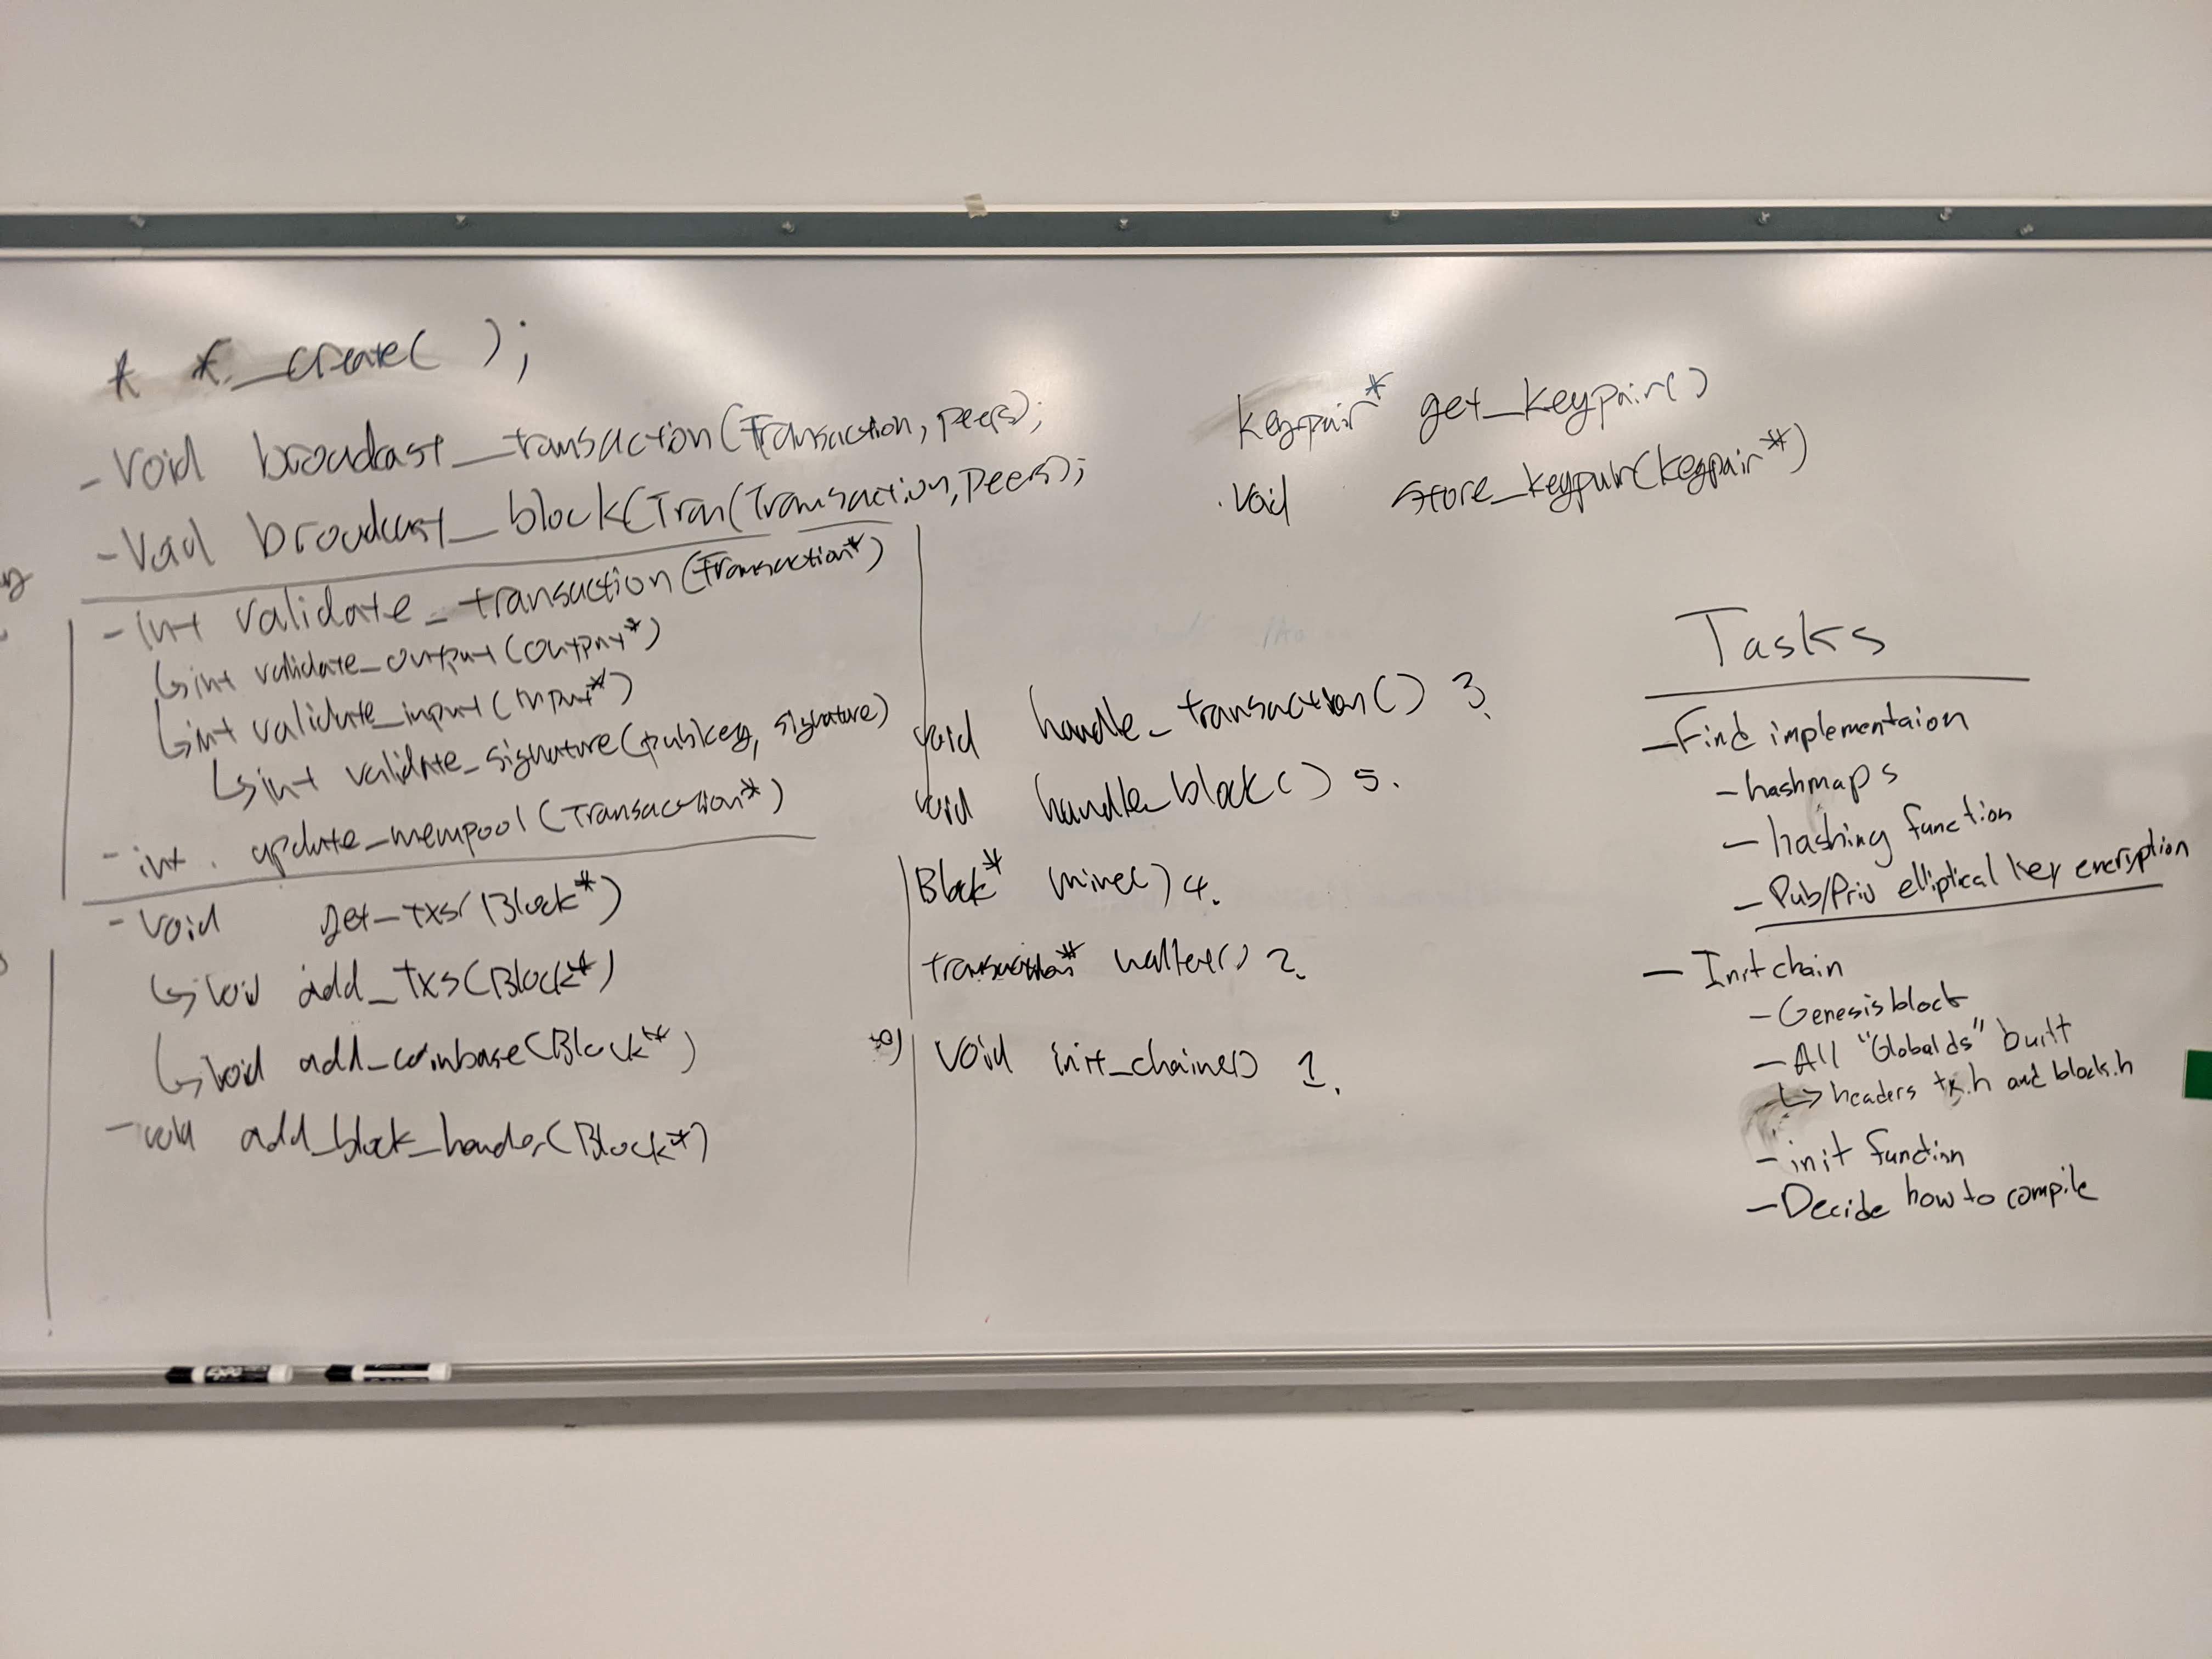 * *_create( );
- Void broadcast_transaction(Transaction, peers);
- Void broadcast_block(Tran(Transaction, Peers);
- int validate_transaction(Transaction*)
↳ int validate_output(Output*)
↳ int validate_input(Input*)
↳ int validate_signature(pubkey, signature)
- int. update_mempool(Transaction*)
- Void get_txs(Block*)
↳ Void add_txs(Block*)
↳ Void add_coinbase(Block*)
- void add_block_header(Block*)
Keypair* get_keypair()
void store_keypair(keypair*)
void handle_transaction() 3.
void handle_block() 5.
Block* mine() 4.
transaction* wallet() 2.
Void init_chain() 1.
Tasks
- Find implementaion
- hashmaps
- hashing function
- Pub/Priv elliptical key encryption
- Init chain
- Genesis block
- All "Global ds" built
↳ headers tx.h and block.h
- init function
- Decide how to compile